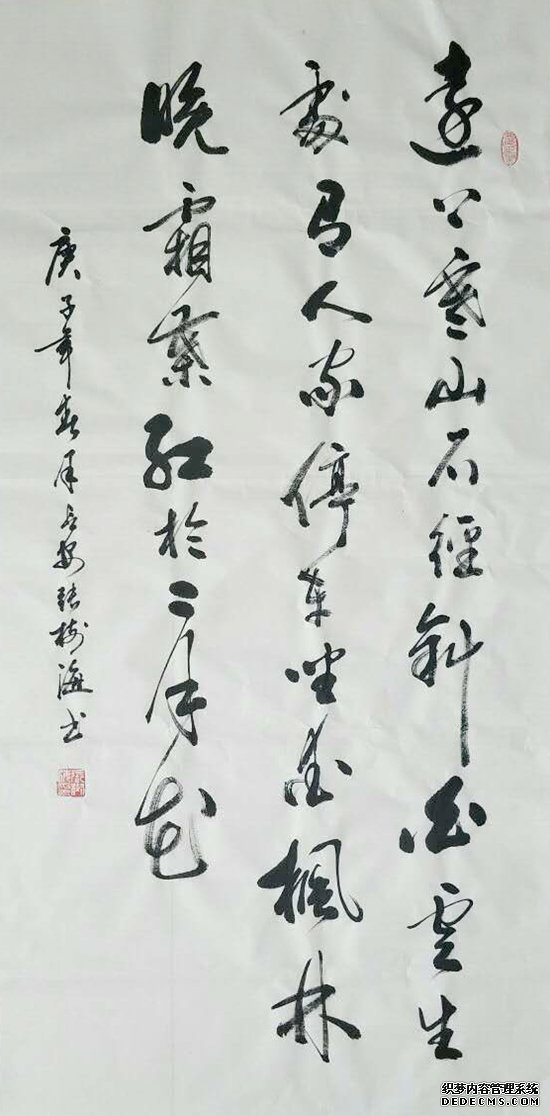 遠上寒山石徑斜白雲生
處有人家停車坐愛楓林
晚霜葉紅於二月花
庚子年春月长安張樹海书
织梦内容管理系统
DEDECMS.COM